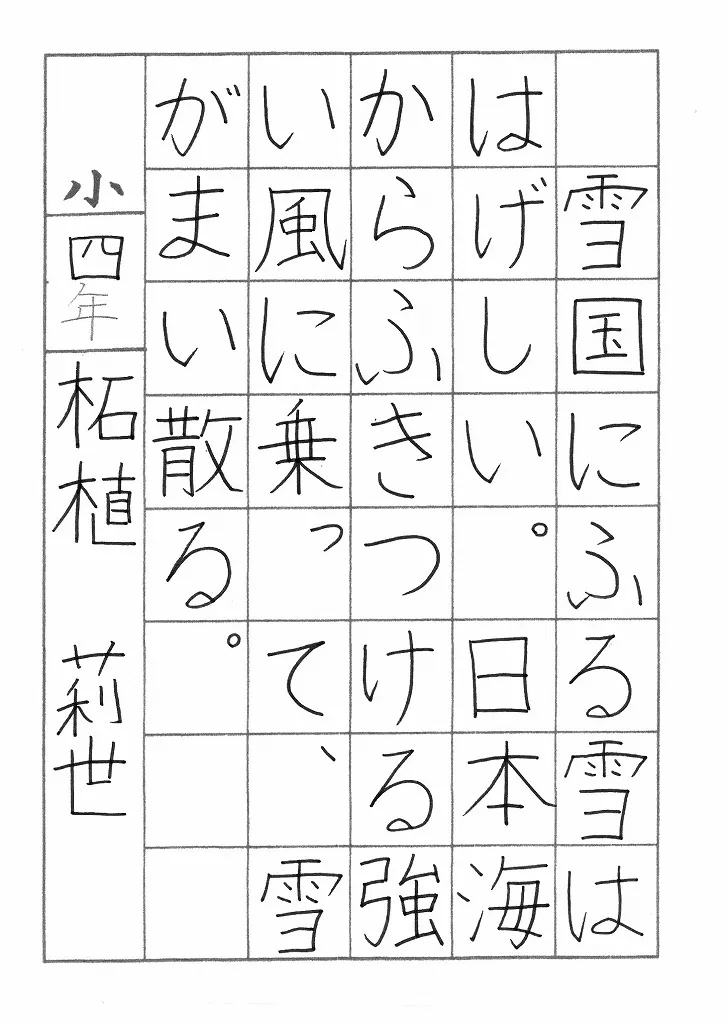 雪国にふる雪は
はげしい。日本海
からふきつける強
い風に乗って、雪
がまい散る。
小四年 柘植 莉世